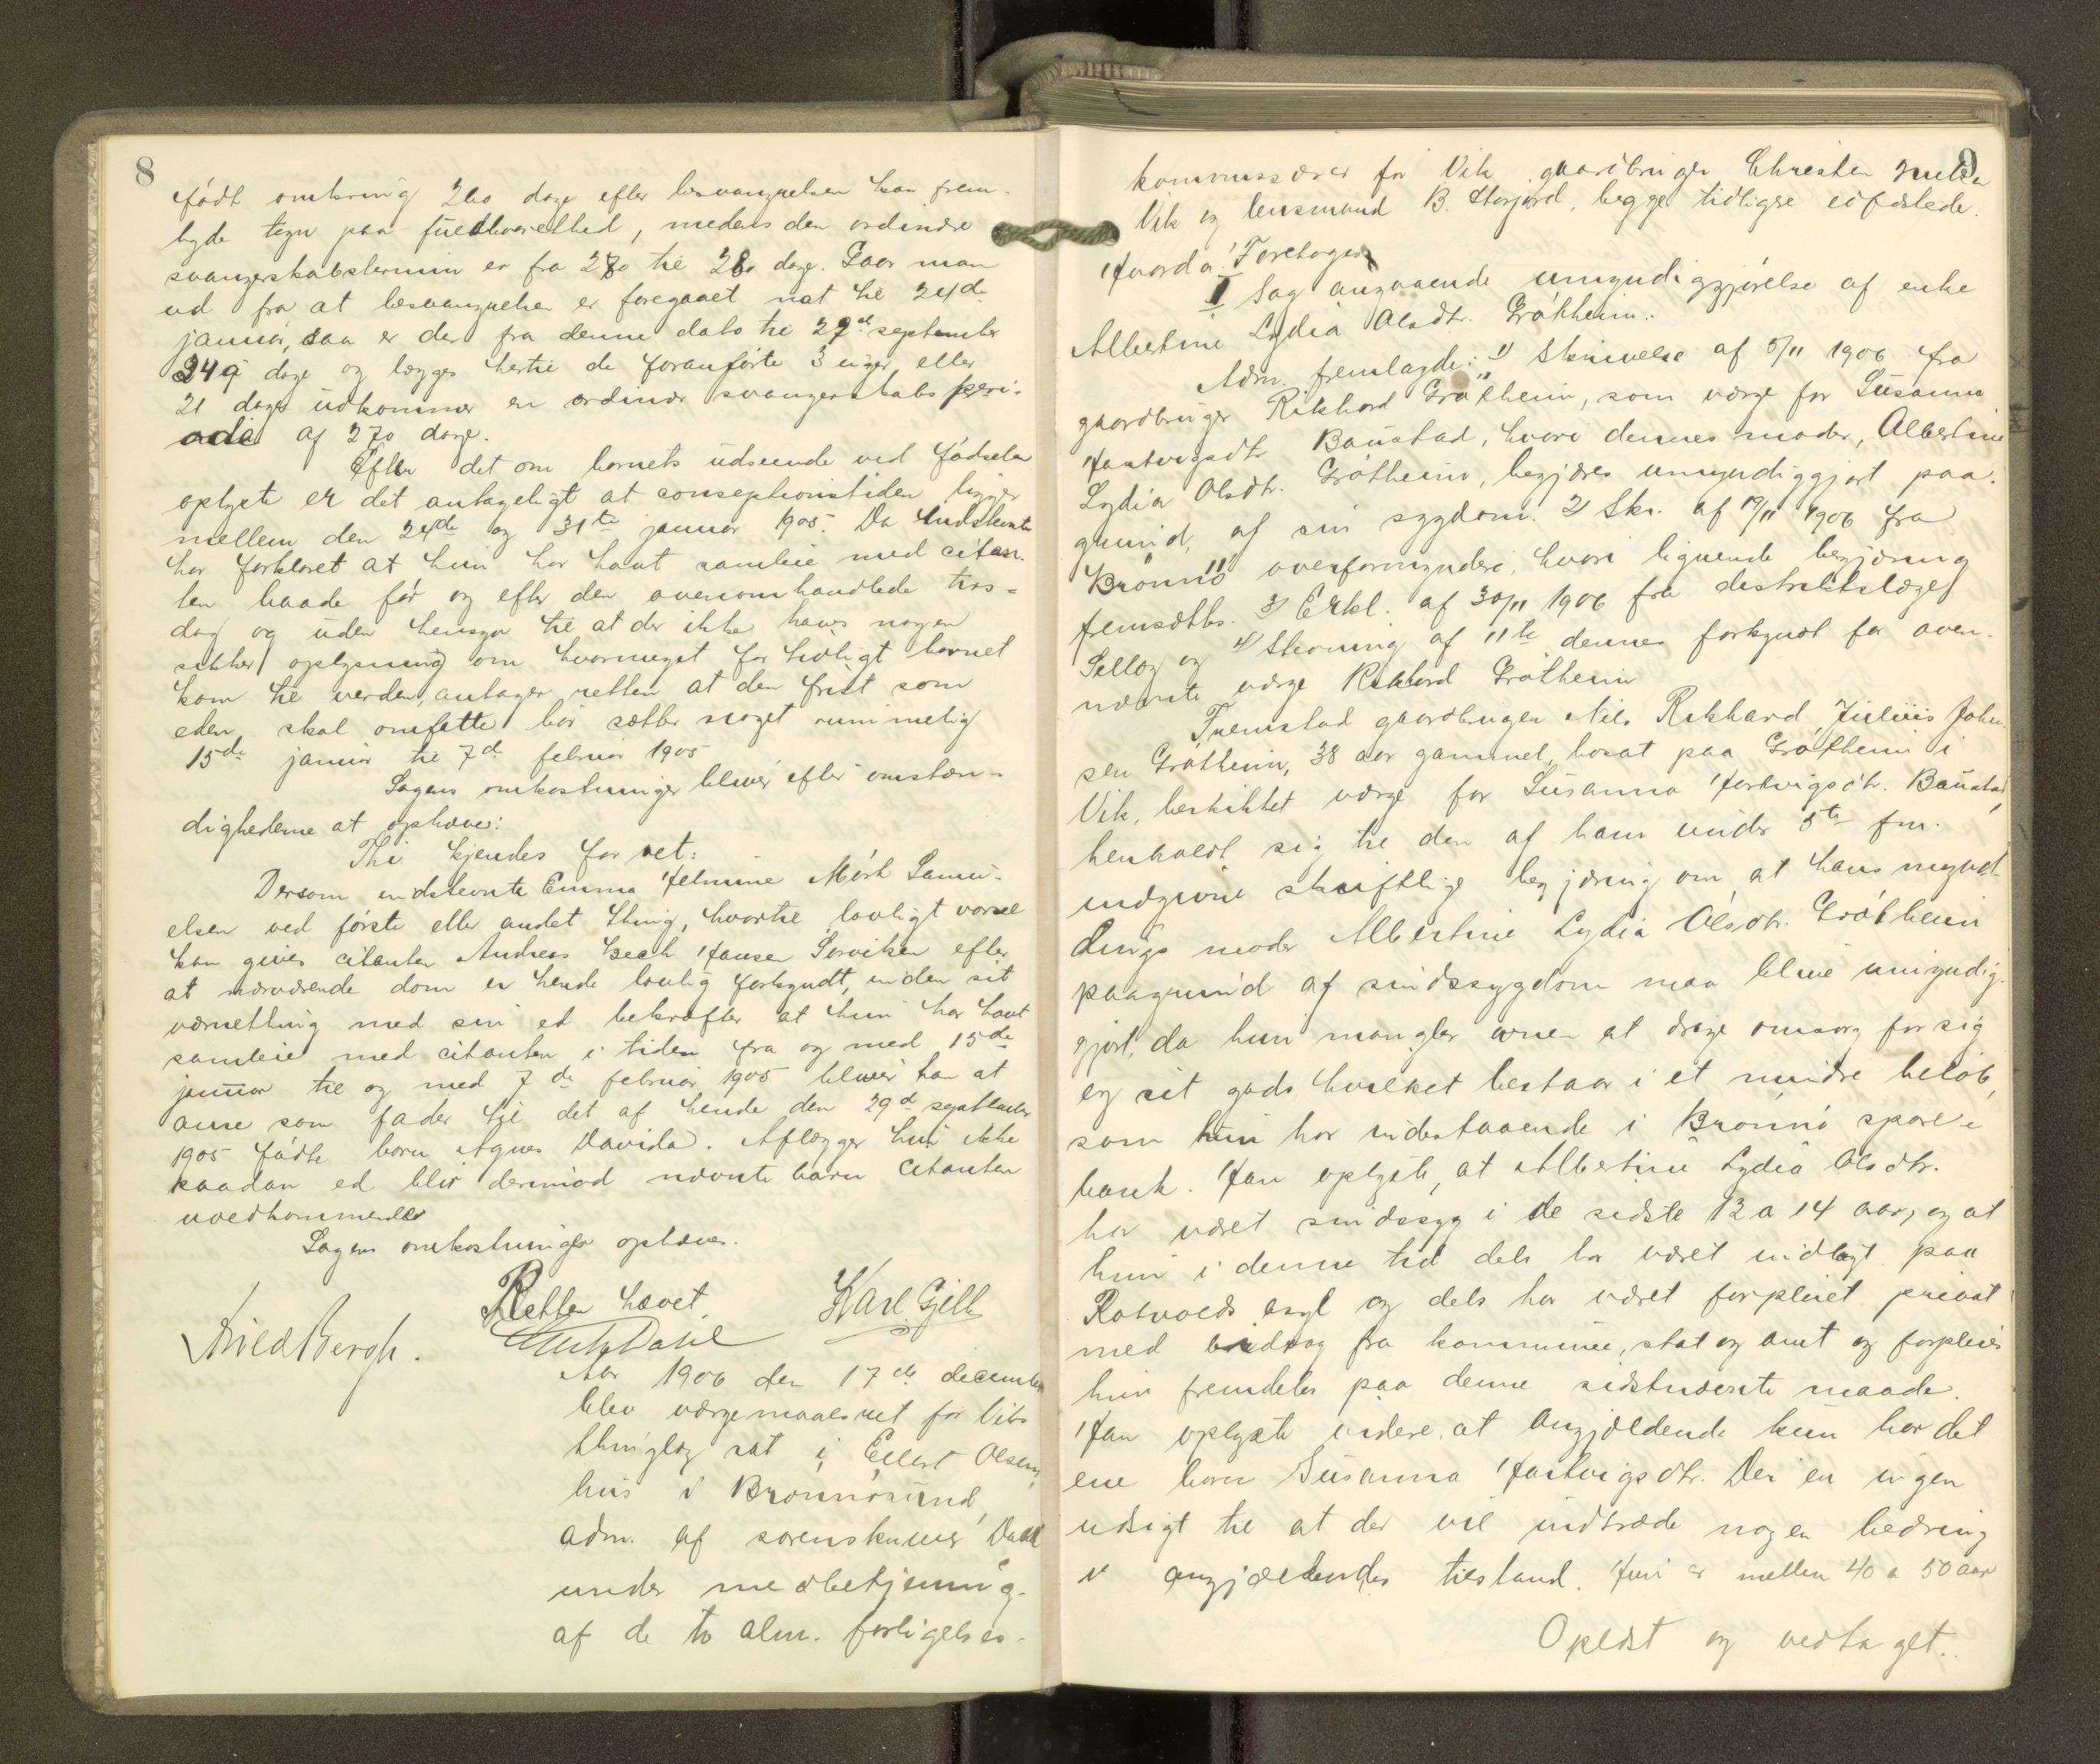 8
født omkring 260 dage efter besvangrelsen kan frem-
byde tegn paa fuldbaarethed, medens den ordinære
svangerskabstermin er fra 270 til 280 dage. Gaar man
ud fra at besvangrelsen er foregaaet nat til 24de
januar, saa er der fra denne dato til 29de september
249 dage og lægges hertil de foranførte 3 uger eller
21 dage udkommer en ordinær svangerskabsperi-
ode af 270 dage.
Efter det om barnets udseende ved fødselen
oplyste er det antageligt at conseptionstiden ligger
mellem den 24de og 31te januar 1905. Da indstevnte
har forklaret at hun har havt samleie med citan-
ten baade før og efter den ovenomhandlede tirs-
dag og uden hensyn til at der ikke haves nogen
sikker oplysning om hvormeget for tidligt barnet
kom til verden, antager retten at den frist som
eden skal omfatte bør sættes noget rummelig
15de januar til 7de februar 1905
Sagens omkostninger bliver efter omstæn-
dighederne at ophæve:
Thi kjendes for ret:
Dersom indstevnte Emma Helmine Mørk Samu-
elsen ved første eller andet thing, hvortil lovligt varsel
kan gives citanten Andreas Zeek Hansen Sørviken efter
at nærværende dom er hende lovlig forkyndt, inden sit
værnething med sin ed bekræfter at hun har havt
samleie med citanten i tiden fra og med 15de
januar til og med 7de februar 1905 bliver han at
anse som fader til det af hende den 29de september
1905 fødte barn Agnes Davida. Aflægger hun ikke
saadan ed blir derimod nævnte barn citanten
uvedkommende
Sagens omkostninger ophæves.
Retten hævet.
Arild Bergh.
Dahl
Karl Gjell
Aar 1906 den 17de december
blev værgemaalsret for Viks
thinglag sat i Edvart Olsens
hus i Brønnøsund,
adm. af sorenskriver Dahl
under medbetjening
af de to alm. forligelses-
9
kommissærer for Vik gaardbruger Christen
Vik og lensmand B. Storjord, begge tidligere edfæstede.
Hvorda: Foretoges
I Sag angaaende umyndiggjørelse af enke
Albertine Lydia Olsdtr. Gråtheim.
Adm. fremlagde: 1) Skrivelse af 5/11 1906 fra
gaardbruger Rikhard Gråtheim, som værge for Susanna
Hartvigsdtr Baustad, hvori dennes moder, Albertine
Lydia Olsdtr. Gråtheim, begjæres umyndiggjort paa-
grund af sin sygdom. 2) Skr. af 19/11 1906 fra
Brønnø overformynderi, hvori lignende begjæring
fremsættes. 3) Erkl. af 30/11 1906 fra distriktslæge
Sellæg og 4) Stevning af 11te dennes forkyndt for oven-
nævnte værge Rikhard Gråtheim
Fremstod gaardbruger Nils Rikhard Julius John-
sen Gråtheim, 38 aar gammel, bosat paa Gråtheim i
Vik, beskikket værge for Susanna Hartvigsdtr. Baustad,
henholdt sig til den af ham under 5te f.m.
indgivne skriftlige begjæring om, at hans mynd-
lings moder Albertine Lydia Olsdtr. Gråtheim
paagrund af sindssygdom maa blive umyndig-
gjort, da hun mangler evnen at drage omsorg for sig
og sit gods hvilket bestaar i et mindre beløb,
som hun har indestaaende i Brønnø spare-
bank. Han oplyste, at Albertine Lydia Olsdtr.
har været sindssyg i de sidste 12 a 14 aar, og at
hun i denne tid dels har været indlagt paa
Rotvolds asyl og dels har været forpleiet privat
med bidrag fra kommune, stat og amt og forpleies
hun fremdeles paa denne sidstnævnte maade.
Han oplyste videre, at angjældende kun har det
ene barn Susanna Hartvigsdtr. Der er ingen
udsigt til at der vil indtræde nogen bedring
i angjældendes tilstand. Hun er mellem 40 a 50 aar
Oplæst og vedtaget.